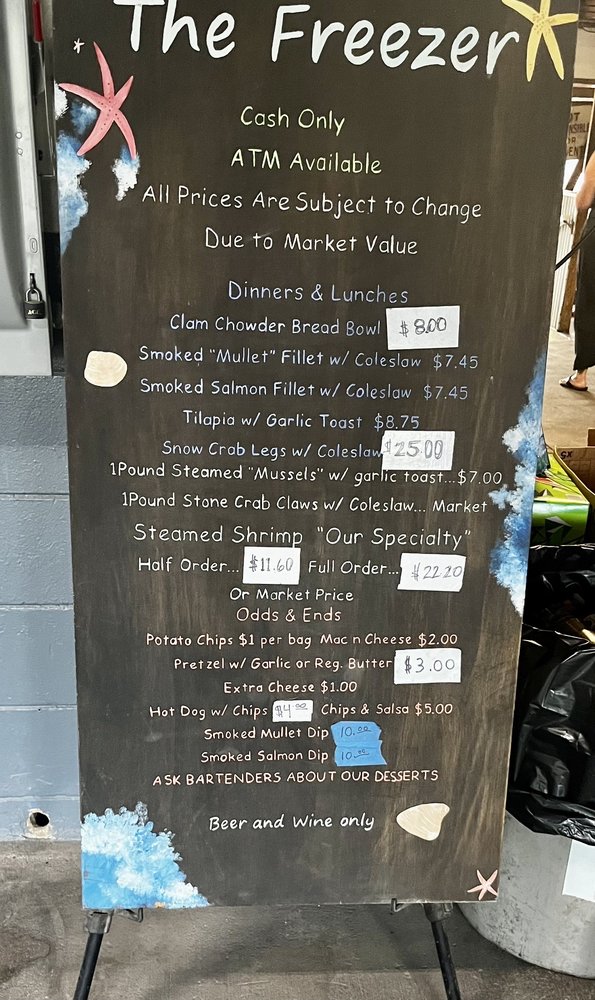 The Freezer
Cash Only
ATM Available
All Prices Are Subject to Change
Due to Market Value
Dinners & Lunches
Clam Chowder Bread Bowl $8.00
Smoked "Mullet" Fillet w/ Coleslaw $7.45
Smoked Salmon Fillet w/ Coleslaw $7.45
Tilapia w/ Garlic Toast $8.75
Snow Crab Legs w/ Coleslaw $25.00
1Pound Steamed "Mussels" w/ garlic toast...$7.00
1Pound Stone Crab Claws w/ Coleslaw... Market
Steamed Shrimp "Our Specialty"
Half Order... $11.60 Full Order... $22.20
Or Market Price
Odds & Ends
Potato Chips $1 per bag Mac n Cheese $2.00
Pretzel w/ Garlic or Reg. Butter $3.00
Extra Cheese $1.00
Hot Dog w/ Chips $4.00 Chips & Salsa $5.00
Smoked Mullet Dip 10.00
Smoked Salmon Dip 10.00
ASK BARTENDERS ABOUT OUR DESSERTS
Beer and Wine only